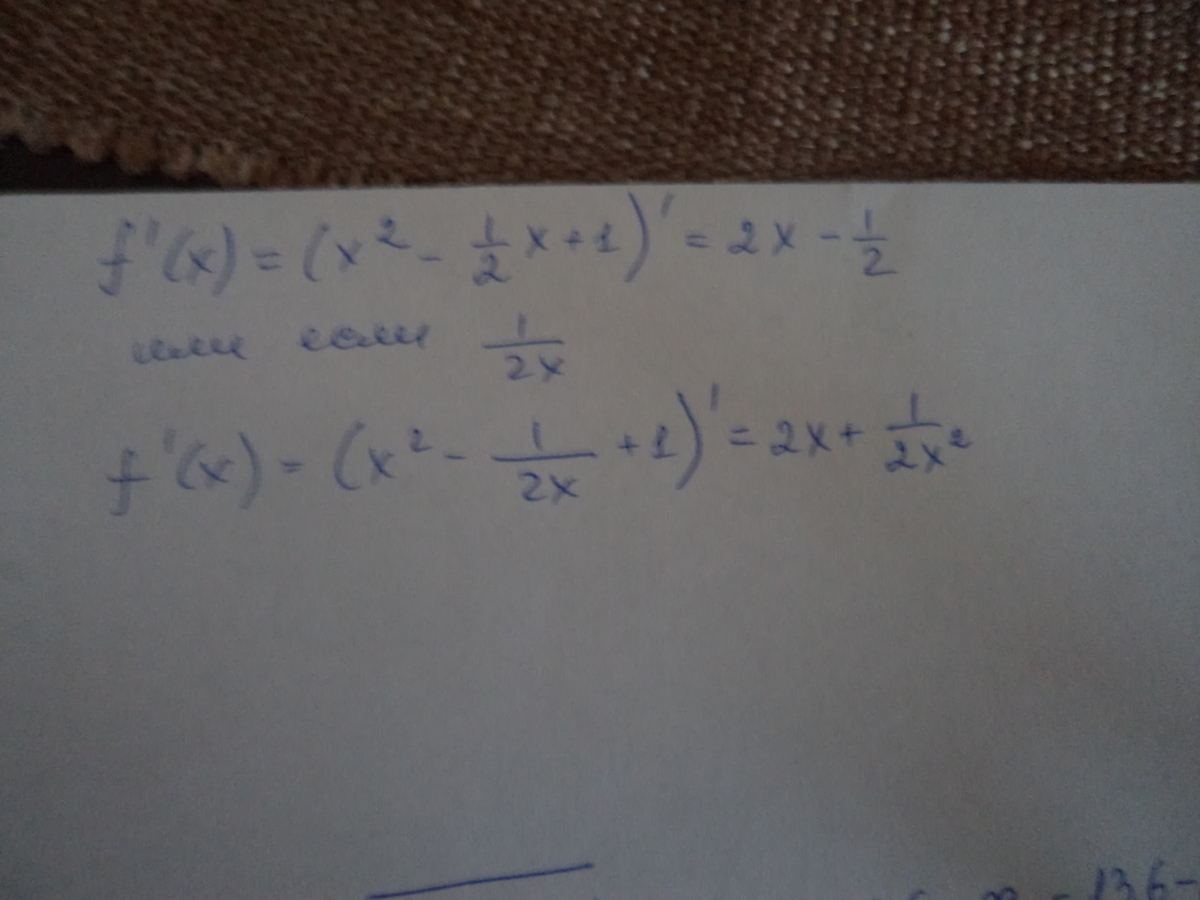 f'(x) = (x² - 1/2 x + 1)' = 2x - 1/2
или если 1/2x
f'(x) = (x² - 1/2x + 1)' = 2x + 1/2x²